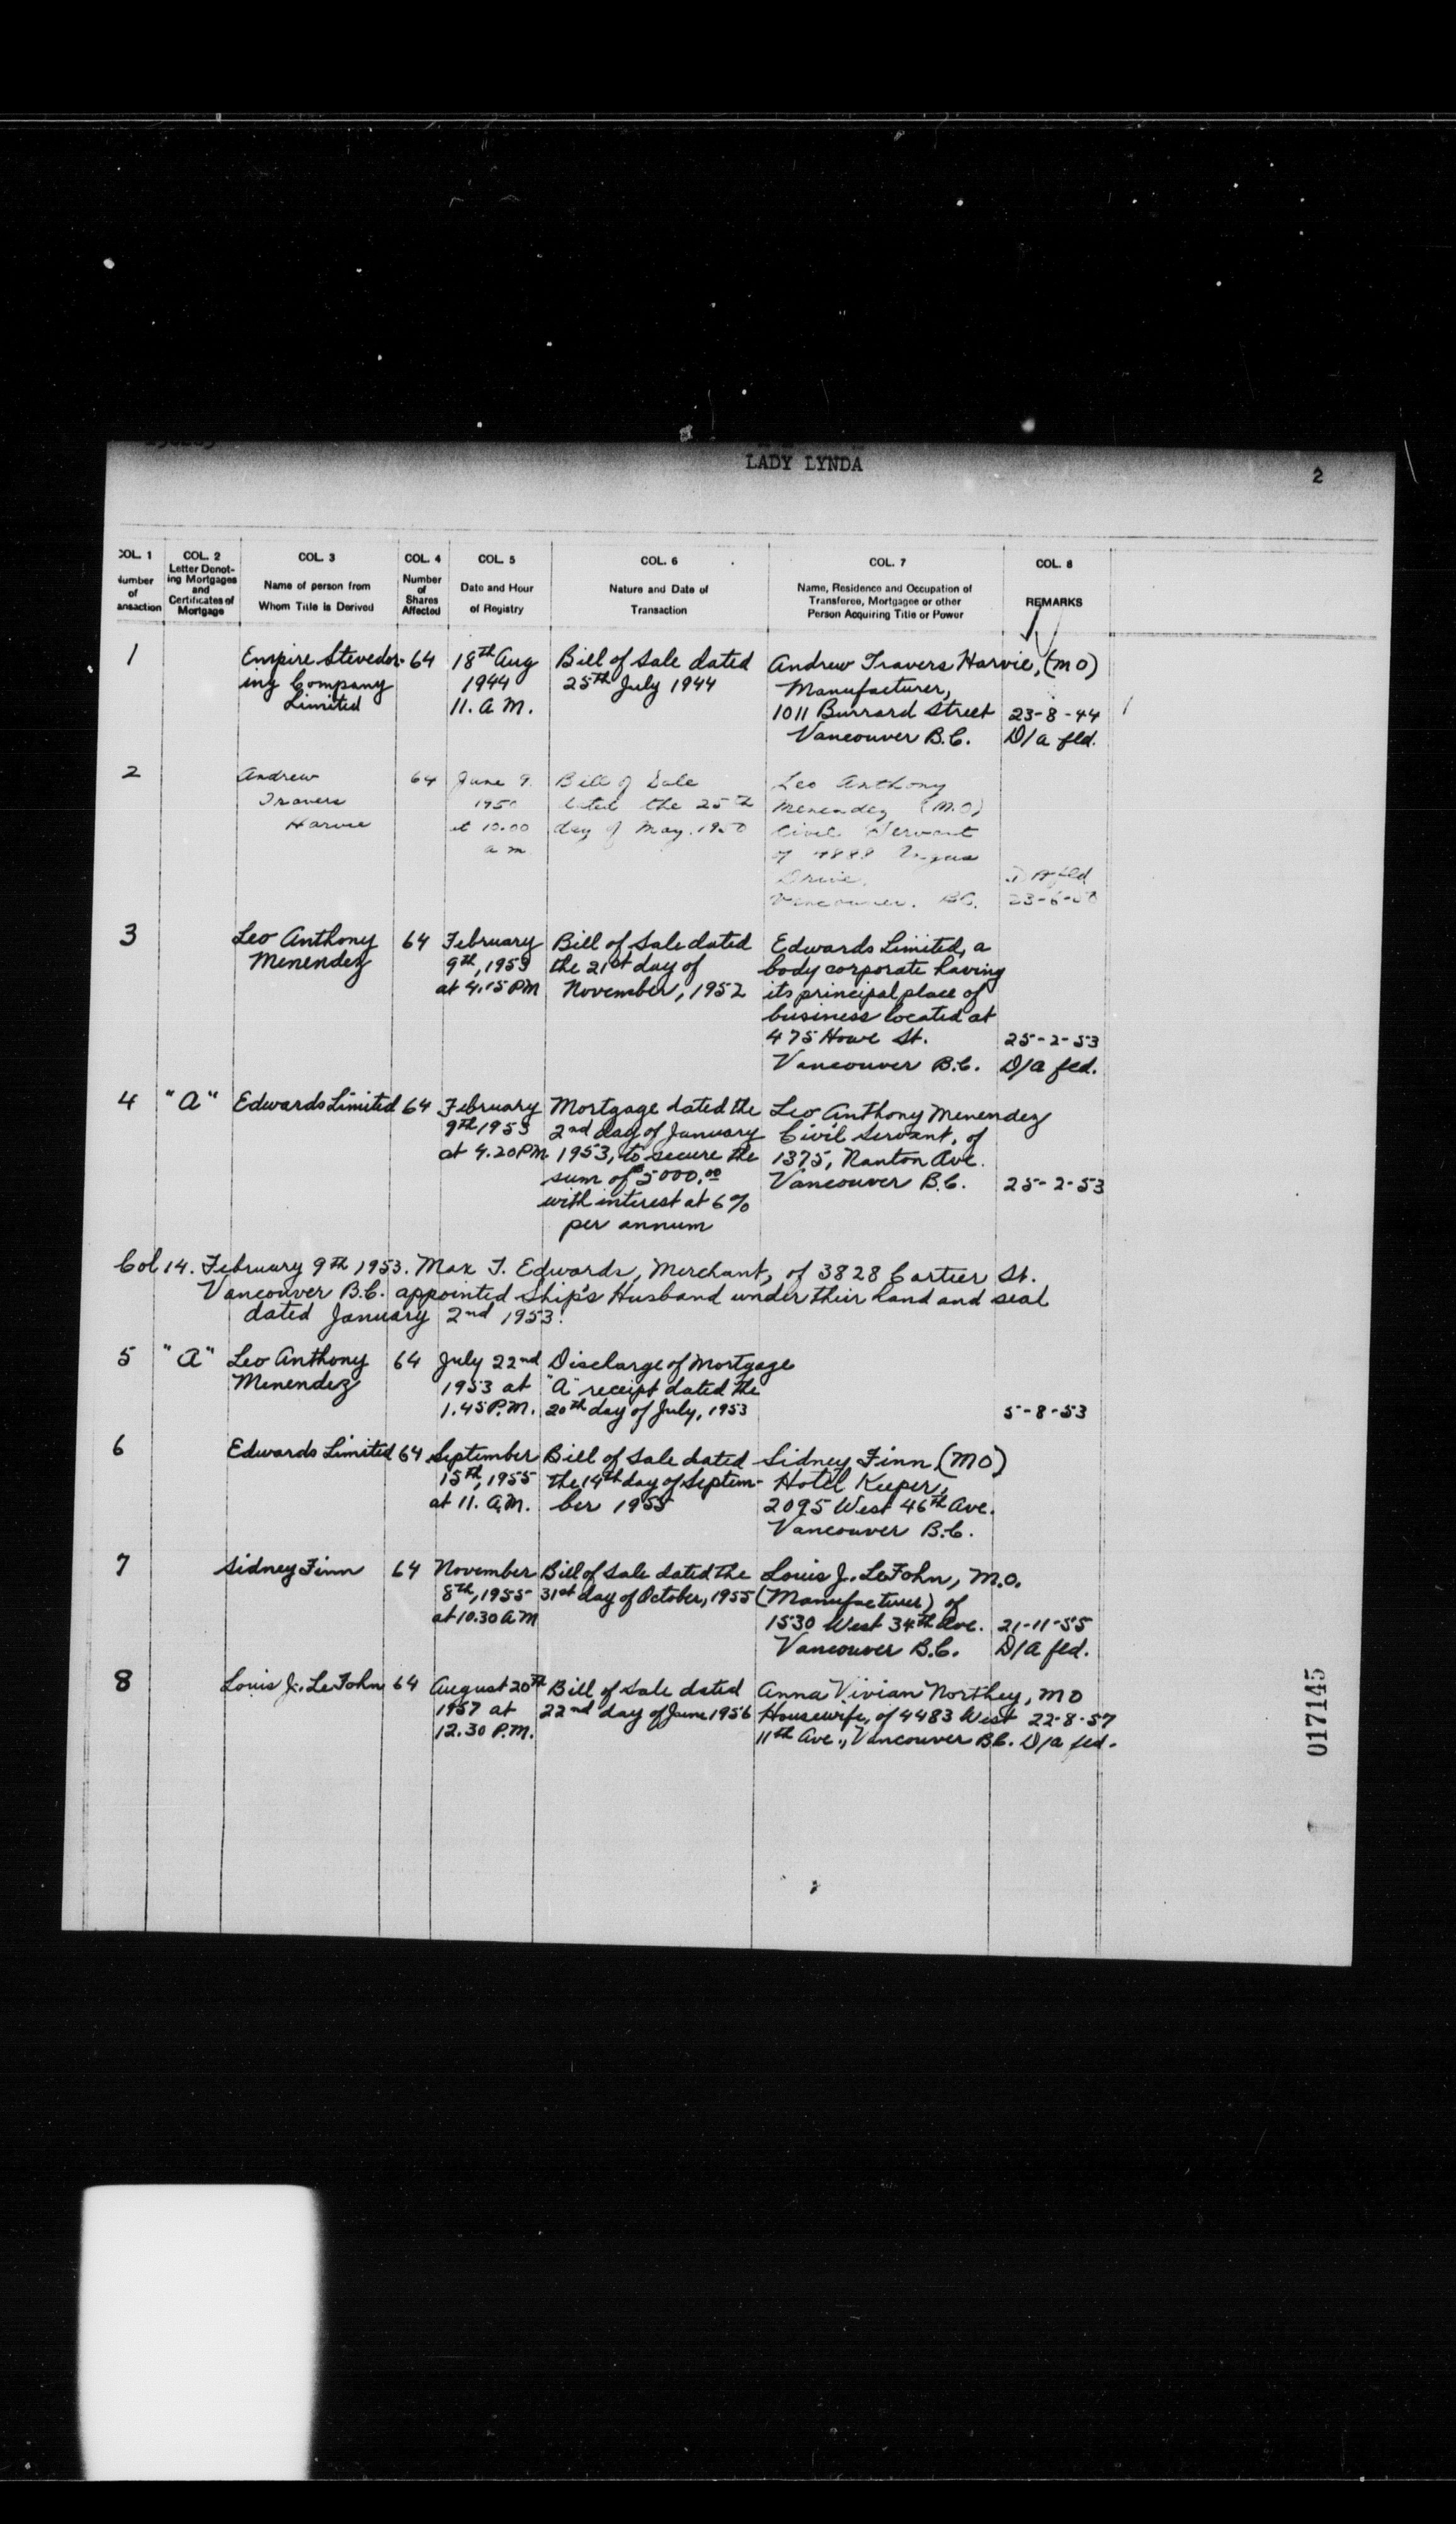 LADY LYNDA
2
COL. 1
COL. 2
COL. 3
COL. 4
COL. 5
COL. 6
COL. 7
COL. 8
Number of Transaction
Letter Denoting Mortgages and Certificates of Mortgage
Name of person from Whom Title Is Derived
Number of Shares Affected
Date and Hour of Registry
Nature and Date of Transaction
Name, Residence and Occupation of Transferee, Mortgagee or other Person Acquiring Title or Power
REMARKS
1 Empire Stevedor- 64 18th Aug Bill of Sale dated Andrew Travers Harvie, (MO)
ing Company 1944 25th July 1944 Manufacturer,
Limited 11. A.M. 1011 Burrard Street 23-8-44
Vancouver B.C. D/a fld.
2 Andrew 64 June 9 Bill of Sale Leo Anthony
Travers 1950 dated the 25th Menendez (M.O)
Harvie at 10.00 day of May. 1950 Civil Servant
a m of 4888 Angus
Drive. D A fld
Vancouver. BC. 23-6-50
3 Leo Anthony 64 February Bill of Sale dated Edwards Limited, a
Menendez 9th, 1953 the 21st day of body corporate having
at 4.15 PM November, 1952 its principal place of
business located at
475 Howe St. 25-2-53
Vancouver B.C. D/a fld.
4 "A" Edwards Limited 64 February Mortgage dated the Leo Anthony Menendez
9th 1953 2nd day of January Civil Servant, of
at 4.20 PM 1953, to secure the 1375, Nanton Ave.
sum of $5000.00 Vancouver B.C. 25-2-53
with interest at 6%
per annum
Col 14. February 9th 1953. Max T. Edwards, Merchant, of 3828 Cartier St.
Vancouver B.C. appointed Ship's Husband under their hand and seal
dated January 2nd 1953.
5 "A" Leo Anthony 64 July 22nd Discharge of Mortgage
Menendez 1953 at "A" receipt dated the
1.45 P.M. 20th day of July, 1953 5-8-53
6 Edwards Limited 64 September Bill of Sale dated Sidney Finn (MO)
15th, 1955 the 14th day of Septem- Hotel Keeper,
at 11. A.M. ber 1955 2095 West 46th Ave.
Vancouver B.C.
7 Sidney Finn 64 November Bill of Sale dated the Louis J. LeFohn, M.O.
8th, 1955 31st day of October, 1955 (Manufacturer) of
at 10.30 AM 1530 West 34th Ave. 21-11-55
Vancouver B.C. D/a fld.
8 Louis J. LeFohn 64 August 20th Bill of Sale dated Anna Vivian Northey, MO
1957 at 22nd day of June 1956 Housewife, of 4483 West 22-8-57
12.30 P.M. 11th Ave., Vancouver B.C. D/a fld.
017145